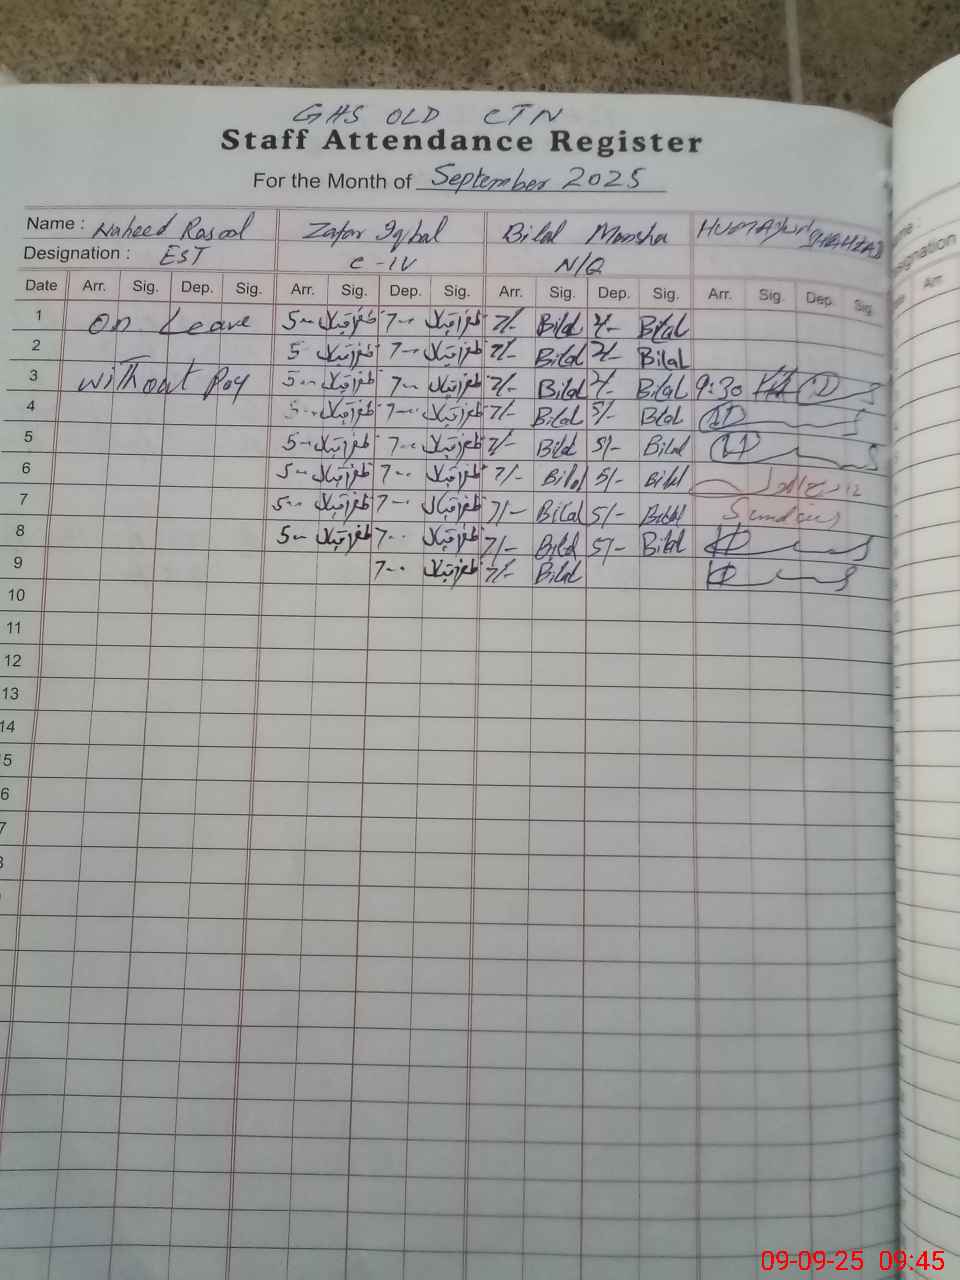 GHS OLD CTN
Staff Attendance Register
For the Month of September 2025
Name : Naheed Rasool Zafar Iqbal Bilal Mansha HUMAYUN SHAHZAD
Designation : EST C-IV N/Q
Date Arr. Sig. Dep. Sig. Arr. Sig. Dep. Sig. Arr. Sig. Dep. Sig. Arr. Sig. Dep. Sig.
1 On Leave 5-00 ظفراقبال 7-00 ظفراقبال 7/- Bilal Bilal
2 5- ظفراقبال 7-00 ظفراقبال 7/- Bilal Bilal
3 without Pay 5-00 ظفراقبال 7-00 ظفراقبال 7/- Bilal Bilal 9:30
4 5-00 ظفراقبال 7-00 ظفراقبال 7/- Bilal 5/- Bilal
5 5-00 ظفراقبال 7-00 ظفراقبال 7/- Bilal 5/- Bilal
6 5-00 ظفراقبال 7-00 ظفراقبال 7/- Bilal 5/- Bilal
7 5-00 ظفراقبال 7-00 ظفراقبال 7/- Bilal 5/- Bilal
8 5-00 ظفراقبال 7-00 ظفراقبال 7/- Bilal 5/- Bilal
9 7-00 ظفراقبال 7/- Bilal
10
11
12
13
14
5
6
7
09-09-25 09:45